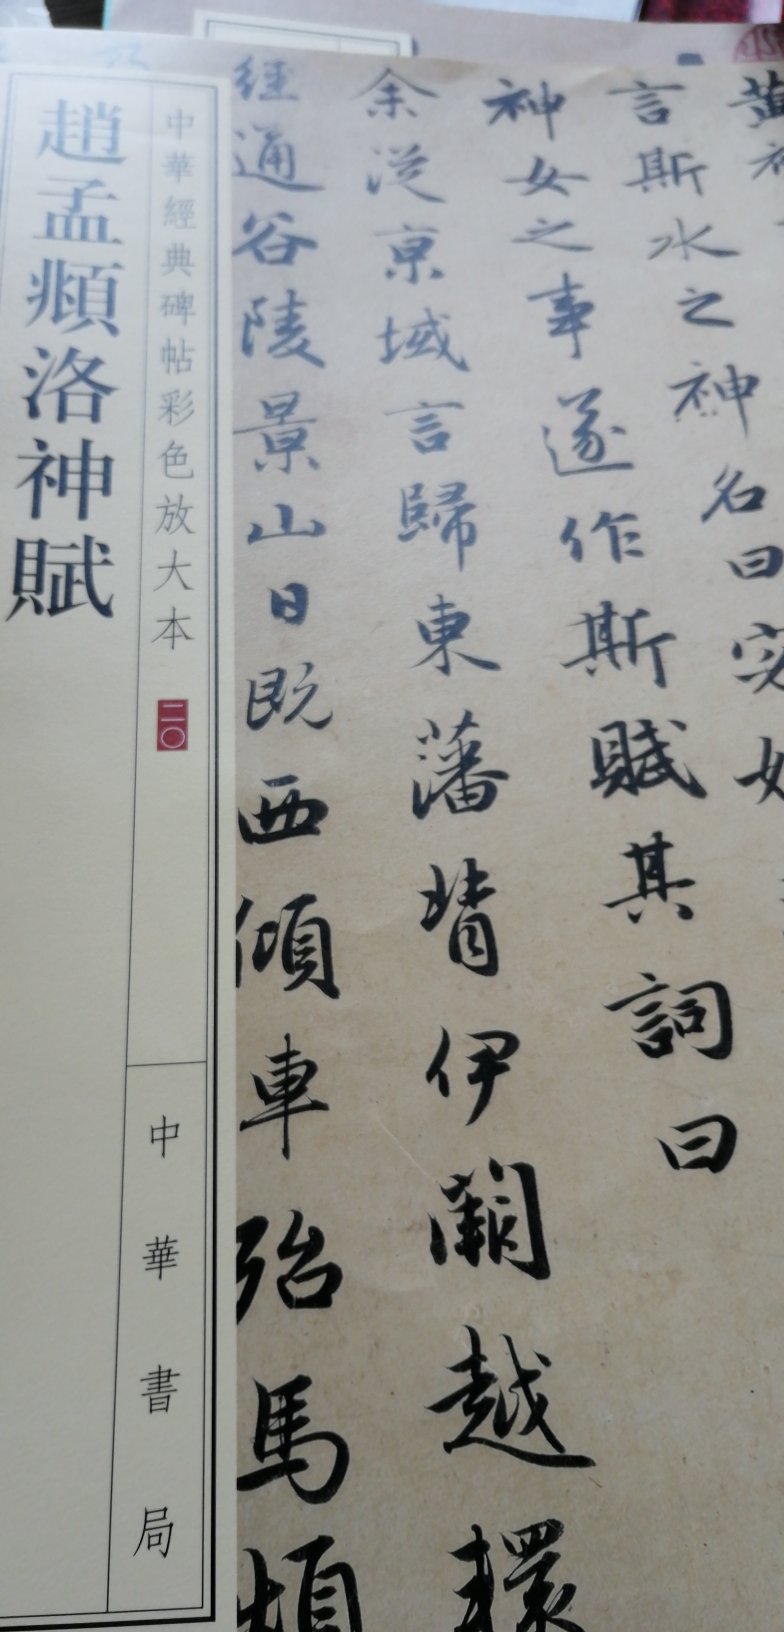 趙孟頫洛神賦
中華經典碑帖彩色放大本
二〇
中華書局
言斯水之神名曰宓妃
神女之事遂作斯賦其詞曰
余從京域言歸東藩背伊闕越轘
經通谷陵景山日既西傾車殆馬煩